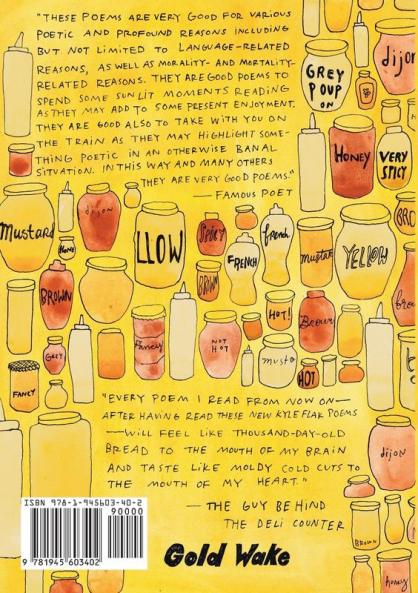 "THESE POEMS ARE VERY GOOD FOR VARIOUS
POETIC AND PROFOUND REASONS INCLUDING
BUT NOT LIMITED TO LANGUAGE-RELATED
REASONS, AS WELL AS MORALITY- AND MORTALITY-
RELATED REASONS. THEY ARE GOOD POEMS TO
SPEND SOME SUNLIT MOMENTS READING
AS THEY MAY ADD TO SOME PRESENT ENJOYMENT.
THEY ARE GOOD ALSO TO TAKE WITH YOU ON
THE TRAIN AS THEY MAY HIGHLIGHT SOME-
THING POETIC IN AN OTHERWISE BANAL
SITUATION. IN THIS WAY AND MANY OTHERS
THEY ARE VERY GOOD POEMS."
— FAMOUS POET
dijon
GREY
POUP
ON
HONEY
VERY
SPICY
Mustard
dijon
HONEY
LLOW
SPICY
FRENCH
french
BROWN
Mustard
YELLOW
BROWN
HOT!
Brown
GREY
Fancy
NOT
HOT
musta
HOT
FANCY
"EVERY POEM I READ FROM NOW ON—
AFTER HAVING READ THESE NEW KYLE FLAK POEMS
—WILL FEEL LIKE THOUSAND-DAY-OLD
BREAD TO THE MOUTH OF MY BRAIN
AND TASTE LIKE MOLDY COLD CUTS TO
THE MOUTH OF MY HEART."
— THE GUY BEHIND
THE DELI COUNTER
dijon
BROWN
honey
ISBN 978-1-945603-40-2
90000
9 781945 603402
Gold Wake